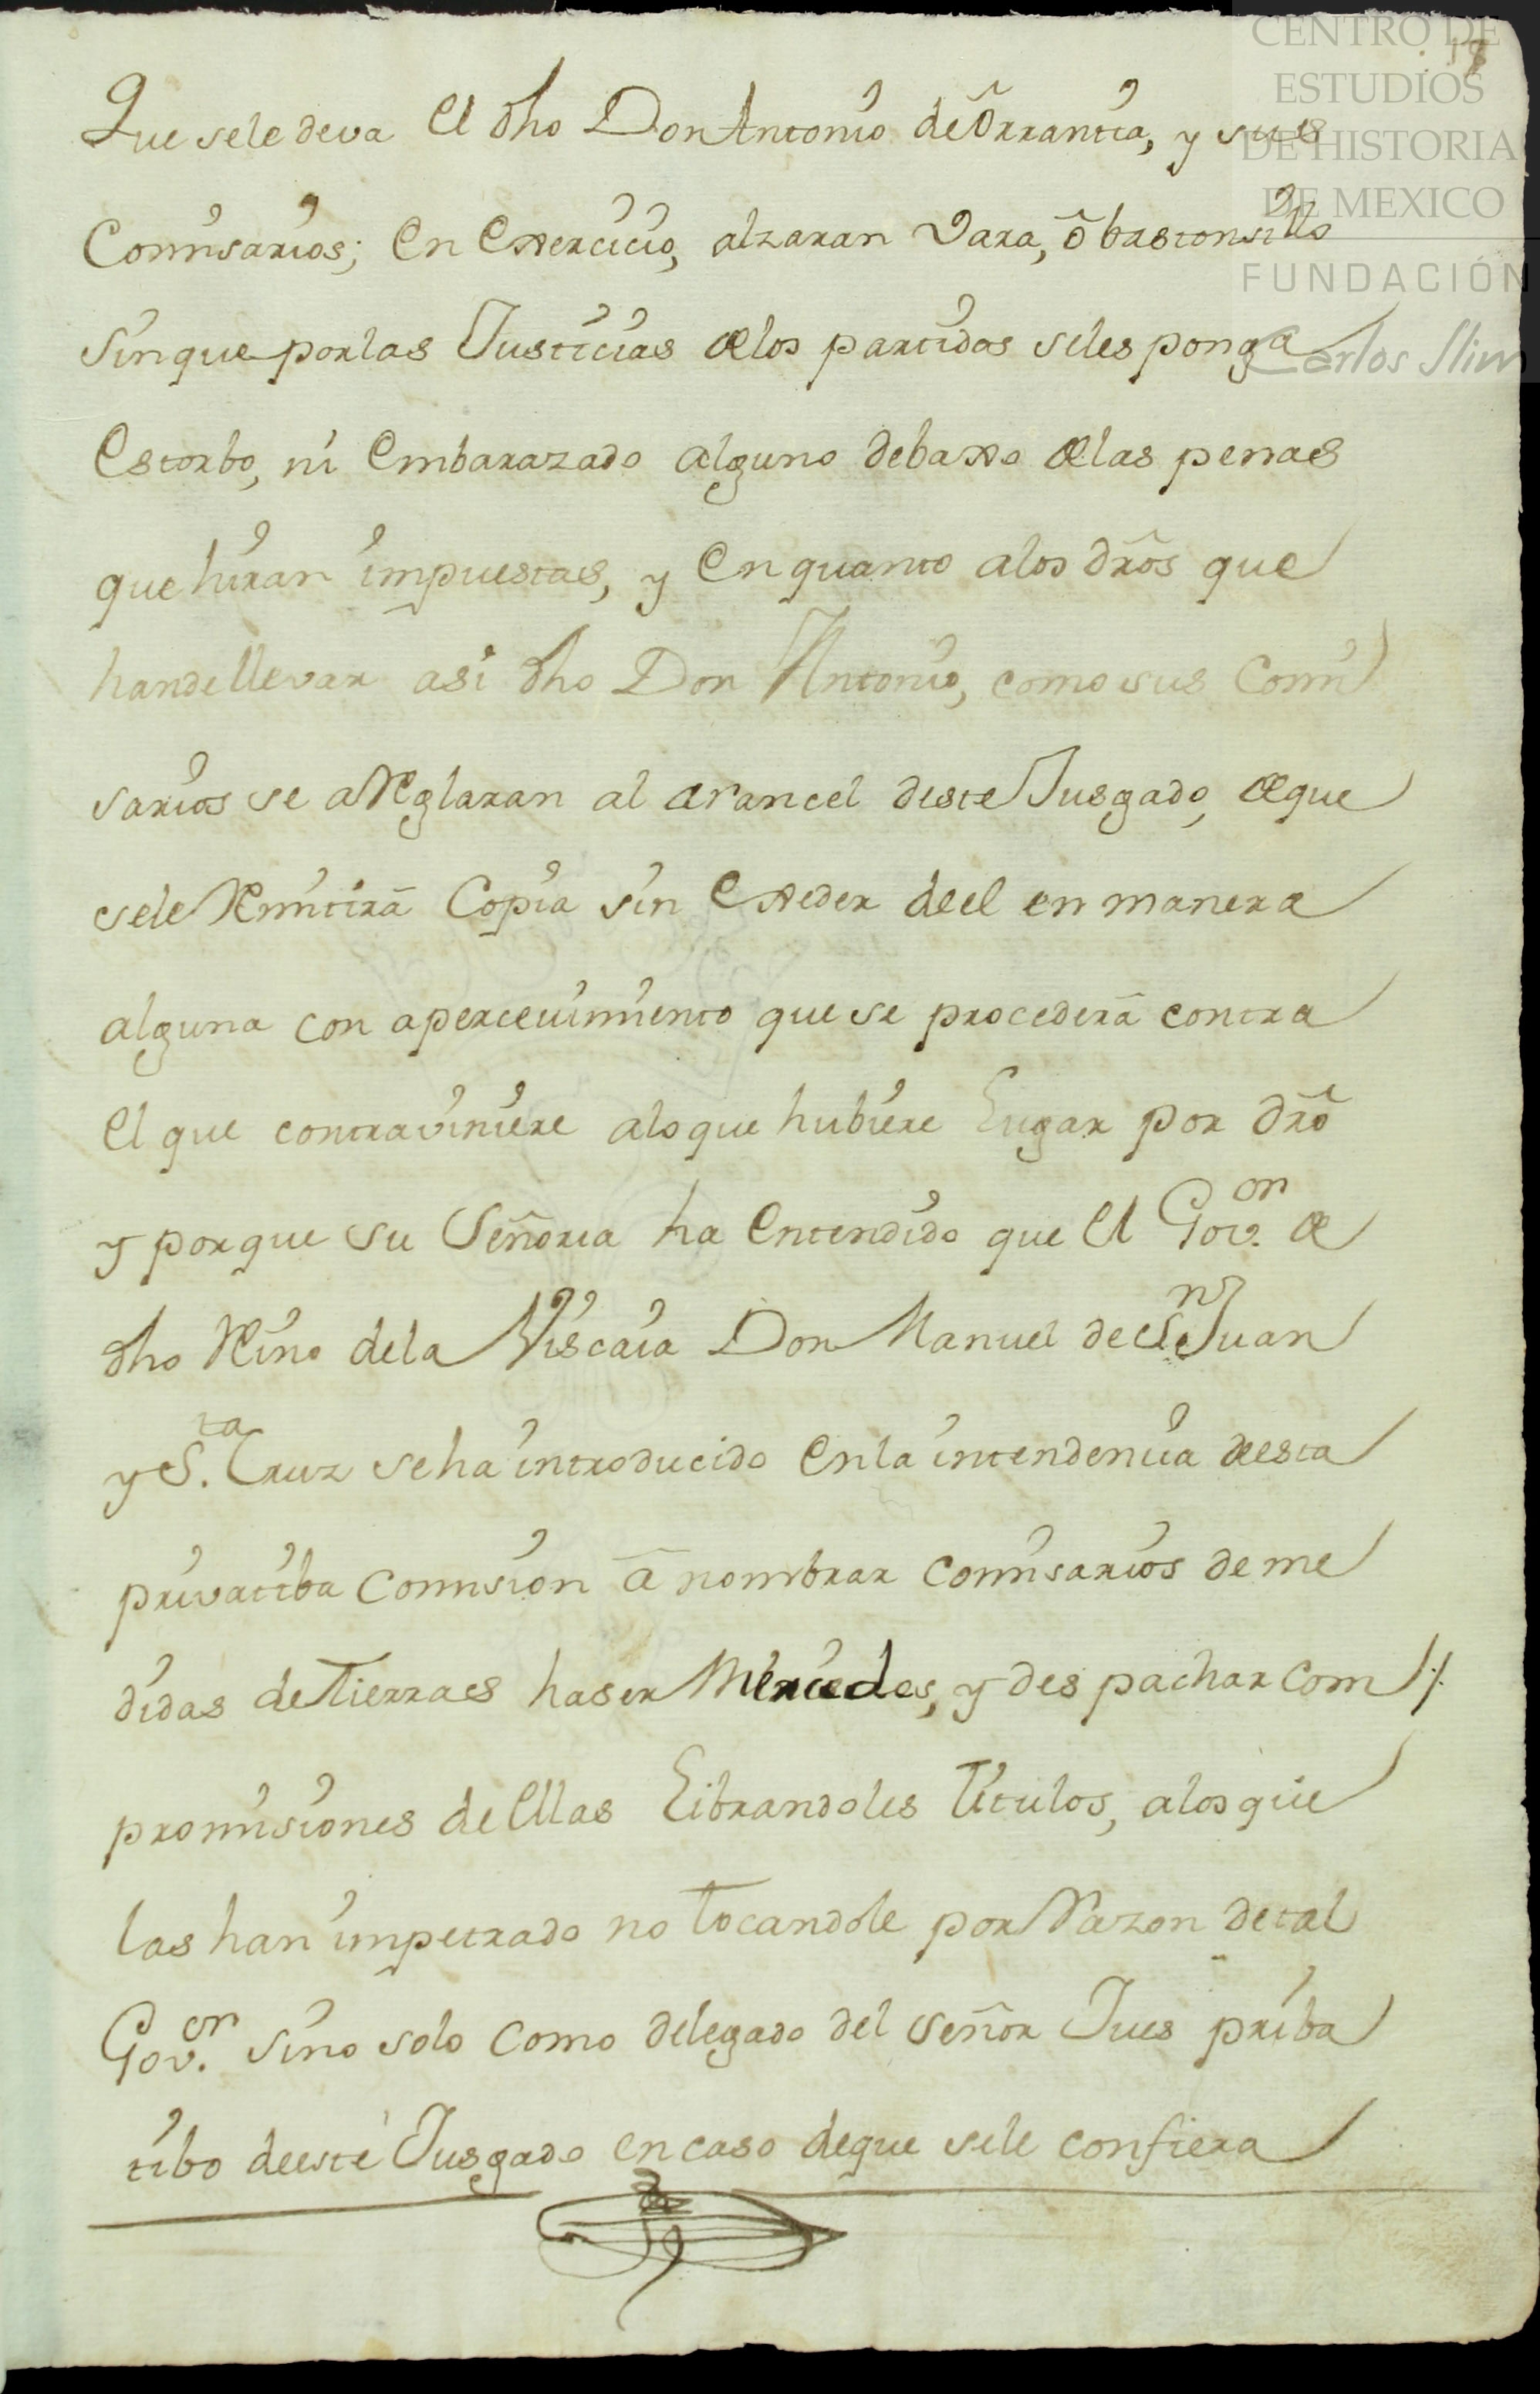 CENTRO DE
ESTUDIOS
DE HISTORIA
DE MEXICO
FUNDACIÓN
Carlos Slim
Que sele deva el dho Don Antonio de Orrantia, y sus
Comisarios; en exercicio, alzaran Vara, ô bastonsillo
sinque porlas Justicias de los partidos seles ponga
estorbo, ni embarazado alguno debaxo de las penas
que hiran impuestas, y en quanto alos dr̃os que
handellevar asi dho Don Antonio, como sus Comi
sarios se aReglaran al arancel deste Jusgado, de que
sele Remitirâ Copia sin exeder deel en manera
alguna con apercevimiento que se procederâ contra
el que contraviniere alo que hubiere Lugar por dr̃o
y porque su Señoria ha entendido que el Gov.or de
dho Reino dela Viscaia Don Manuel de Sn Juan
y S.ta Cruz seha introducido enla intendencia de esta
privatiba comision â nombrar comisarios de me
didas de Tierras haser Mercedes, y des pachar com
promisiones de ellas Librandoles titulos, alos que
las han impetrado no tocandole por Razon detal
Gov.or sino solo como delegado del señor Jues priba
tibo deeste Jusgado encaso deque sele confiera